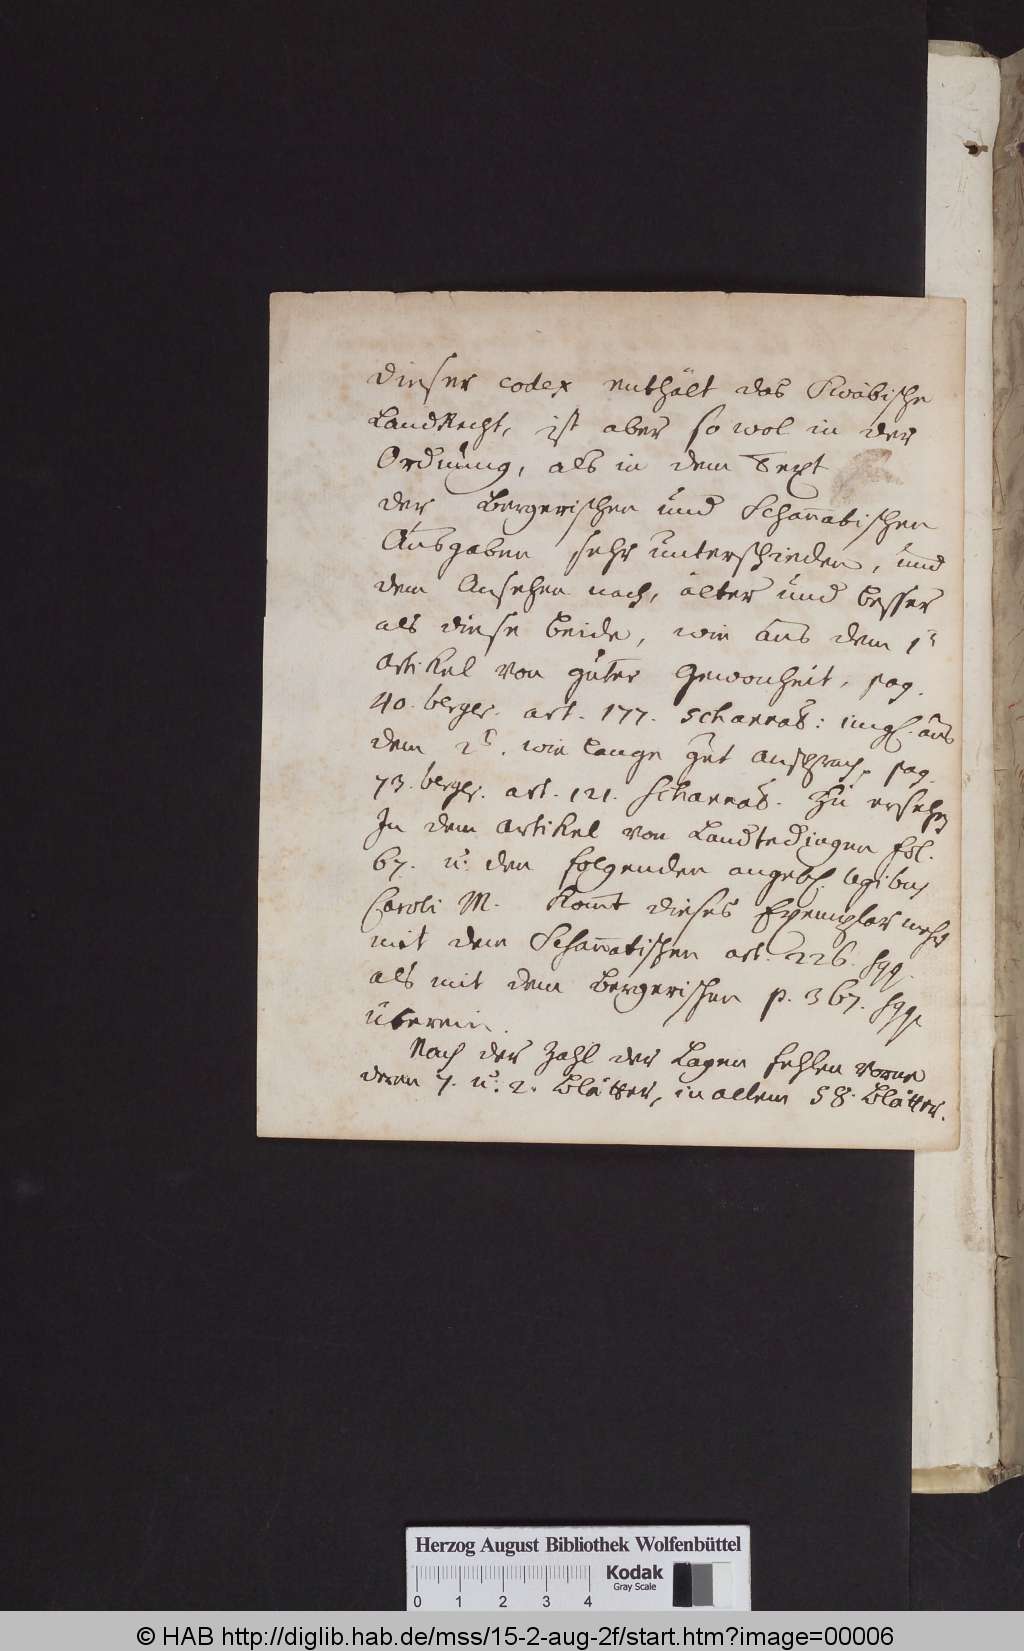 dieser codex enthält das Swäbische
LandRecht, ist aber so wol in der
Ordnung, als in dem Text
der Bergerischen und Schan̄atischen
Ausgaben sehr unterschieden, und
dem Ansehen nach, älter und besser
als diese beide, wie aus dem 1r
Artikel von guter Gewonheit, pag.
40. berger. art. 177. schannat: imgl. aus
dem 2r. wie lange gut Ansprach, pag.
73. berger. art. 121. schannat. zu ersehen
In dem Artikel von Landtedingen fol.
67. u. den folgenden angebl. legibus
Caroli M. kom̄t dieses Exemplar mehr
mit dem Schan̄atischen art. 226. sqq.
als mit dem Bergerischen p. 367. sqq.
überein.
Nach der Zahl der Lagen fehlen vorne
deren 7. u. 2. Blätter, in allem 58. Blätter.
Herzog August Bibliothek Wolfenbüttel
Kodak
Gray Scale
0 1 2 3 4
© HAB http://diglib.hab.de/mss/15-2-aug-2f/start.htm?image=00006